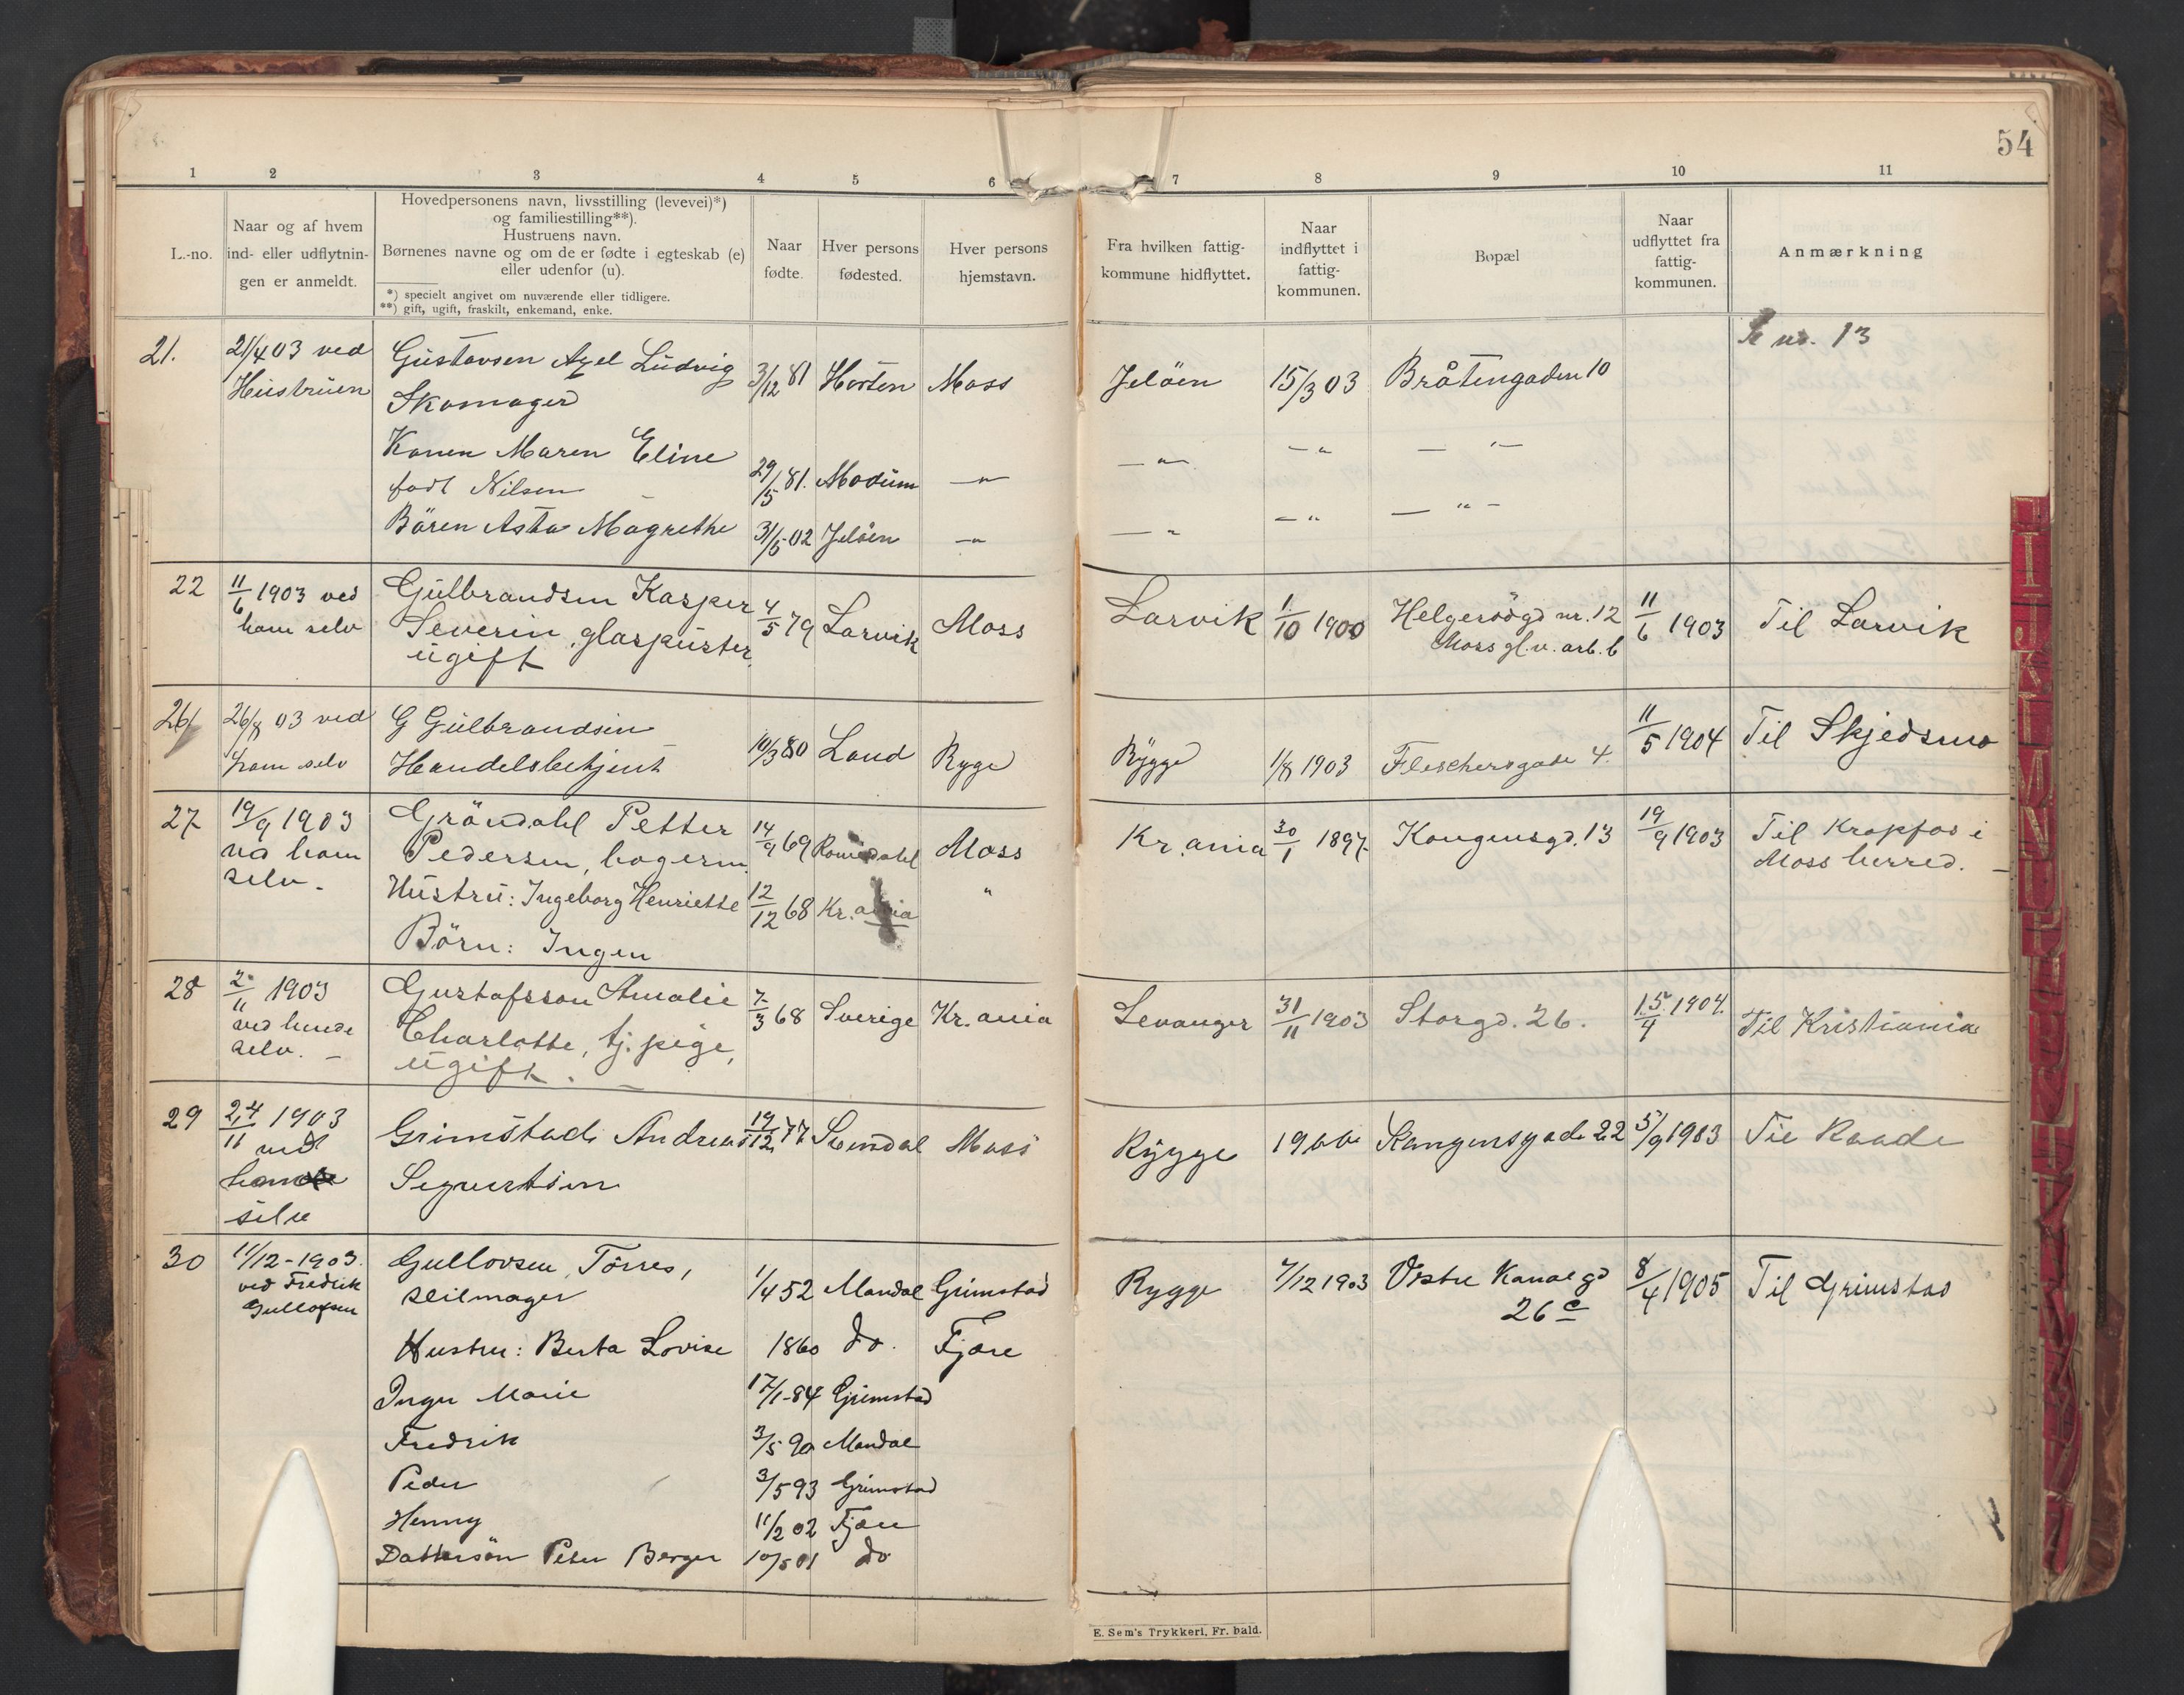 54
1 2 3 4 5 6 7 8 9 10 11
L.-no.
Naar og af hvem
ind- eller udflytnin-
gen er anmeldt.
Hovedpersonens navn, livsstilling (levevei)*)
og familiestilling**).
Hustruens navn.
Børnenes navne og om de er fødte i egteskab (e)
eller udenfor (u).
*) specielt angivet om nuværende eller tidligere.
**) gift, ugift, fraskilt, enkemand, enke.
Naar
fødte.
Hver persons
fødested.
Hver persons
hjemstavn.
Fra hvilken fattig-
kommune hidflyttet.
Naar
indflyttet i
fattig-
kommunen.
Bopæl
Naar
udflyttet fra
fattig-
kommunen.
Anmærkning
Se nr. 13
21. 21/4 03 ved Gustavsen Axel Ludvig 3/12 81 Horten Moss Jelöen 15/3 03 Bråtengaden 10
Hustruen Skomager
Konen Maren Eline
født Nilsen 29/5 81. Modum — " — — " — " — — " —
Bören Asta Magrethe 31/5 02 Jelöen — " — — " — " — " —
22 11/6 1903 ved Gulbrandsen Kasper 4/5 79 Larvik Moss Larvik 1/10 1900 Helgerödgd nr. 12 11/6 1903 Til Larvik
ham selv Severin, glaspuster Moss gl.v. arb. b
ugift
26 26/8 03 ved G Gulbrandsen 11/5 1904 Til Skjedsmo
ham selv Handelsbetjent 10/3 80 Land Ryge Rygge 1/8 1903 Fleschersgade 4.
27 19/9 1903 Gröndahl Petter 14/9 69 Romsdahl Moss Kr.ania 30/1 1897 Kongensgd. 13 19/9 1903 Til Kropfos i
ved ham Pedersen, bagerm. Moss herred. —
selv. Hustru: Ingeborg Henriette 12/12 68 Kr.ania "
Börn: Ingen
28 2/11 1903 Gustafsson Amalie 7/3 68 Sverige Kr.ania Levanger 31/11 1903 Storgd. 26. 15/4 1904. Til Kristiania
ved hende Charlotte, tj.pige,
selv. — ugift. —
29 24/11 1903 Grimstad Andreas 19/12 77 Moss Rygge 1900 Kongensgade 22 5/9 1903 Til Raade
ved
ham
selv
30 11/12-1903. Gullovsen, Törres, 1/4 52 Mandal Grimstad Rygge 7/12 1903 Vestre Kanalgd 8/4 1905 Til Grimstad
ved Fredrik seilmager 26 c
Gullofsen
Hustru: Berta Lovise 1860 do. Fjære
Inger Marie 17/1-84 Grimstad
Fredrik 3/5 90 Mandal
Peder 3/5 93 Grimstad
Henny 11/2 02 Fjære
Dattersön Peter Berger 10/5 01 do
E. Sem's Trykkeri, Fr.hald.